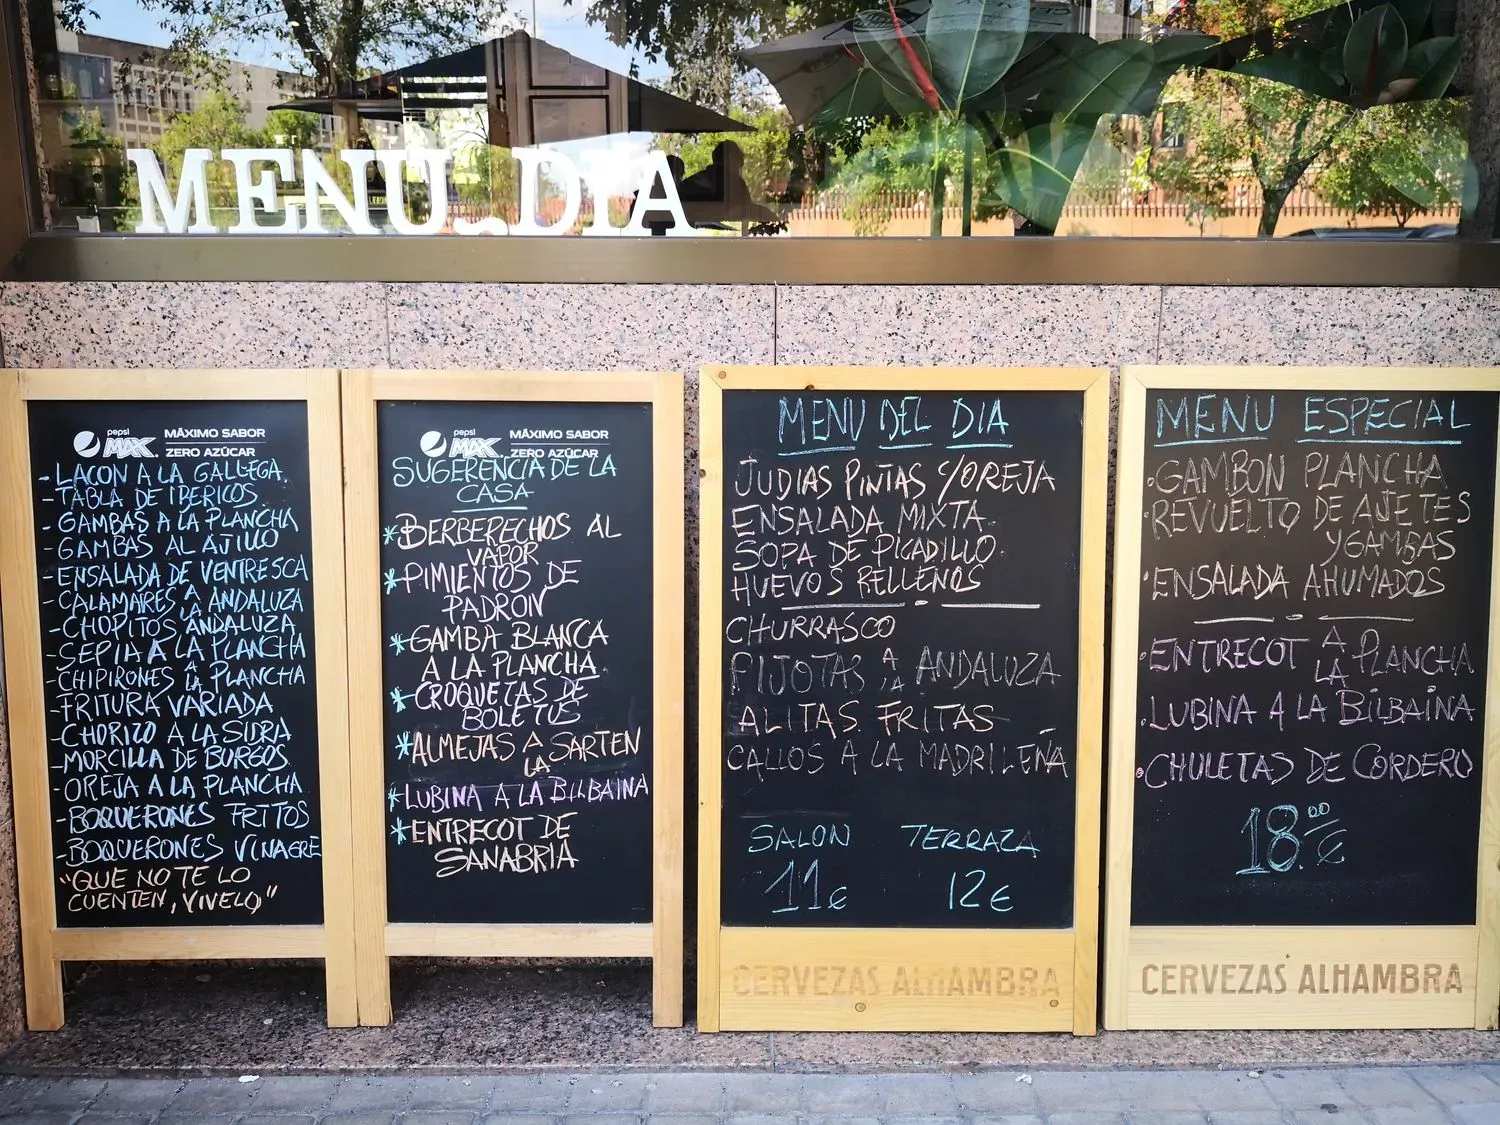 MENU_DIA
pepsi
MAX
MÁXIMO SABOR
ZERO AZÚCAR
-LACON A LA GALLEGA.
-TABLA DE IBERICOS
-GAMBAS A LA PLANCHA
-GAMBAS AL AJILLO
-ENSALADA DE VENTRESCA
-CALAMARES A LA ANDALUZA
-CHOPITOS A LA ANDALUZA
-SEPIA A LA PLANCHA
-CHIPIRONES A LA PLANCHA
-FRITURA VARIADA
-CHORIZO A LA SIDRA
-MORCILLA DE BURGOS.
-OREJA A LA PLANCHA
-BOQUERONES FRITOS
-BOQUERONES VINAGRE
"QUE NO TE LO
CUENTEN, VIVELO"
pepsi
MAX
MÁXIMO SABOR
ZERO AZÚCAR
SUGERENCIA DE LA
CASA
*BERBERECHOS AL
VAPOR
*PIMIENTOS DE
PADRON
*GAMBA BLANCA
A LA PLANCHA.
*CROQUETAS DE
BOLETUS
*ALMEJAS A LA SARTEN
*LUBINA A LA BILBAINA
*ENTRECOT DE
SANABRIA
MENU DEL DIA
JUDIAS PINTAS C/OREJA
ENSALADA MIXTA
SOPA DE PICADILLO
HUEVOS RELLENOS
CHURRASCO
PIJOTAS A LA ANDALUZA
ALITAS FRITAS
CALLOS A LA MADRILEÑA
SALON TERRAZA
11€ 12€
CERVEZAS ALHAMBRA
MENU ESPECIAL
·GAMBON PLANCHA
·REVUELTO DE AJETES
Y GAMBAS
·ENSALADA AHUMADOS
·ENTRECOT A LA PLANCHA
·LUBINA A LA BILBAINA
·CHULETAS DE CORDERO
18.00€
CERVEZAS ALHAMBRA